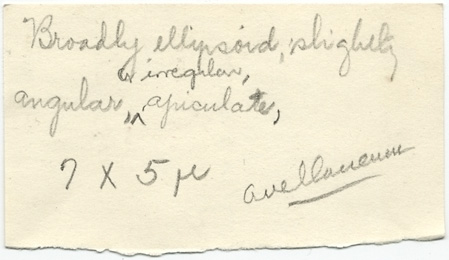 Broadly ellipsoid, slightly
or irregular,
angular, ^ apiculate,
7 X 5 μ
avellaneum